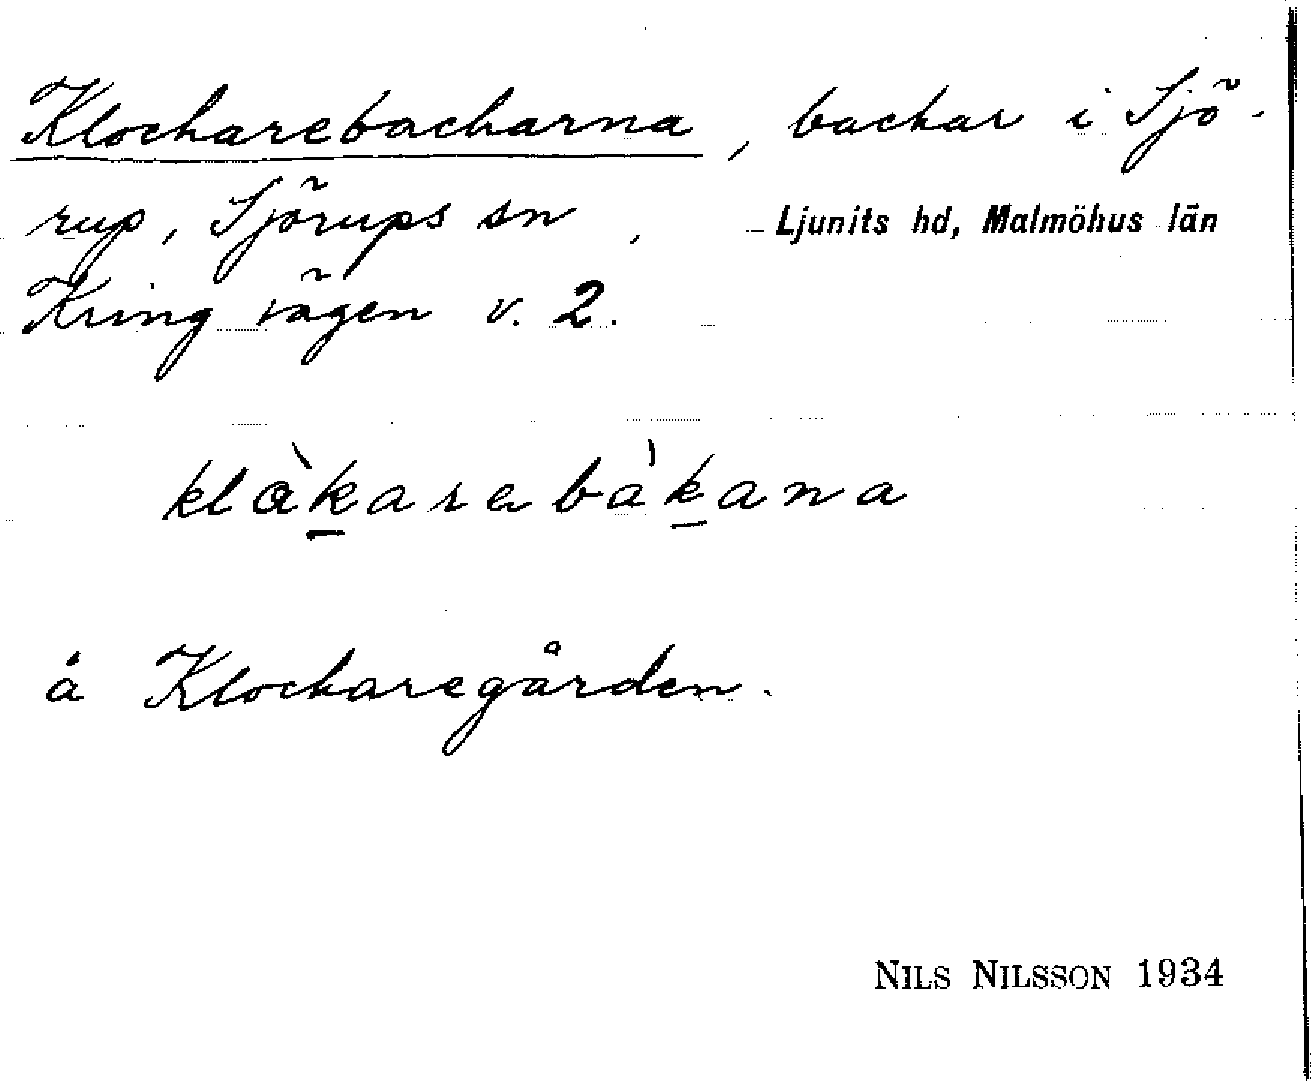 Klockarebackarna, backar i Sjö-
rup, Sjörups sn, Ljunits hd, Malmöhus län
Kring vägen v. 2.
klàk̲arebàk̲ana
å Klockaregården.
NILS NILSSON 1934